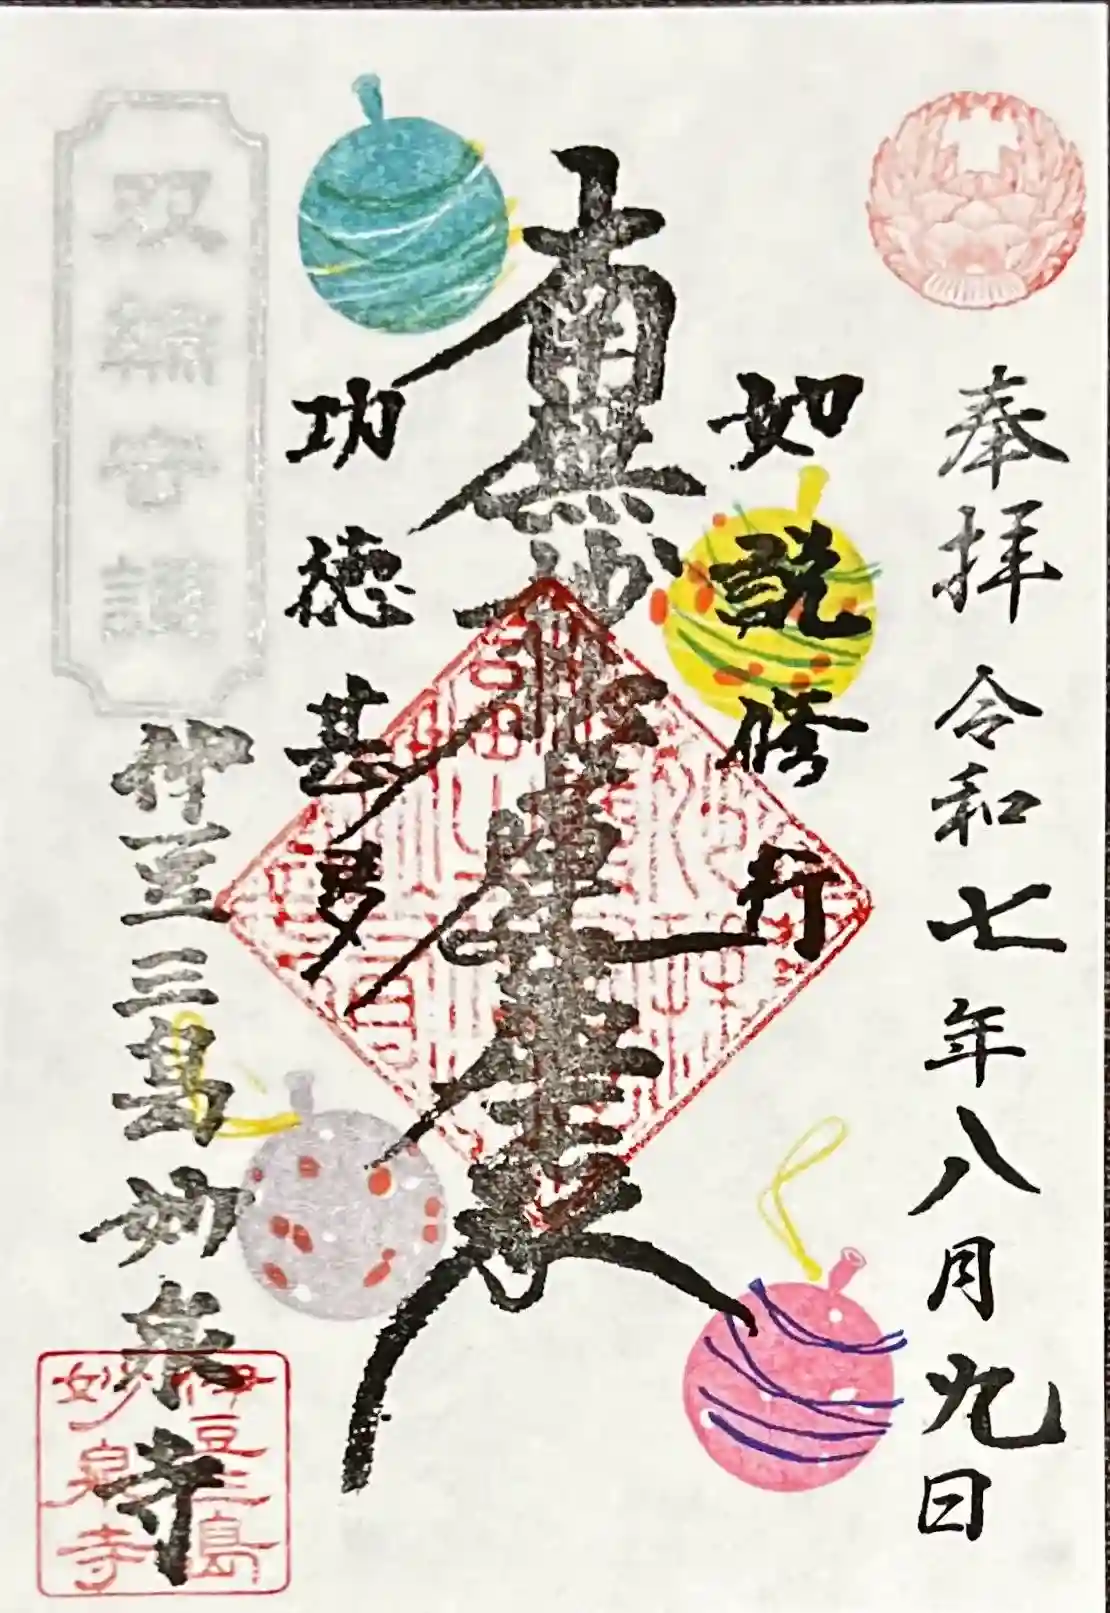 奉拝 令和七年八月九日
如説修行
南無妙法蓮華経
功徳甚多
伊豆三島 妙泉寺
伊豆三島
妙泉寺